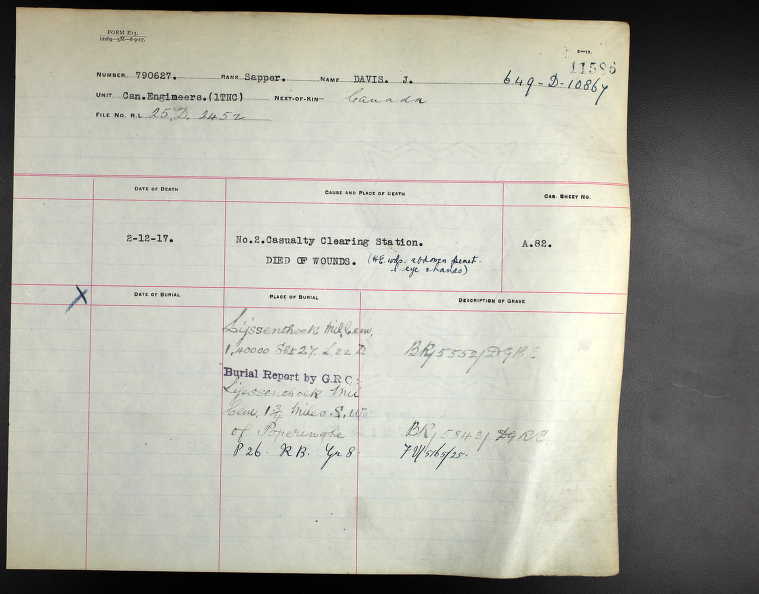 FORM E13.
11586
NUMBER 790627. RANK Sapper. NAME DAVIS. J. 649-D-10867
UNIT Can.Engineers. NEXT-OF-KIN— Canada
FILE NO. R.L. 25.D. 2452
DATE OF DEATH CAUSE AND PLACE OF DEATH CAS. SHEET NO.
2-12-17. No.2.Casualty Clearing Station. A.82.
DIED OF WOUNDS. abdomen
eye & hands)
X DATE OF BURIAL PLACE OF BURIAL DESCRIPTION OF GRAVE
Lijssenthoek Mil. Cem.
1/40000 Sht 27. L 22 D
Burial Report by G.R.C.
Lijssenthoek Mil
Cem. Miles S.W.
of Poperinghe
P 26. R B. Gr 8